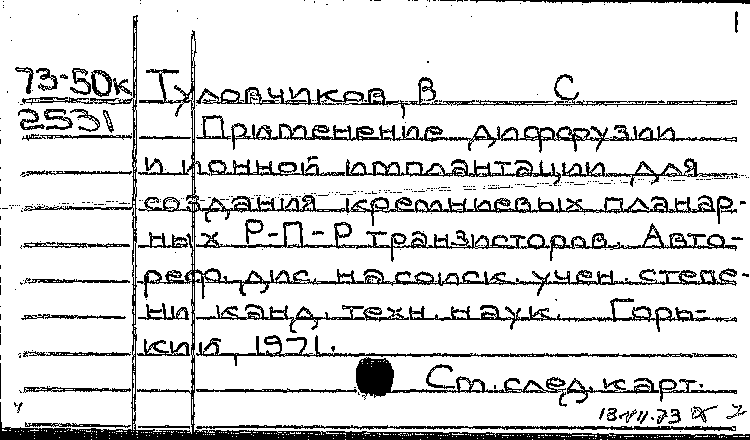 73-50к Туловчиков, В С
2531 Применение диффузии
и ионной имплантации для
создания кремниевых планар-
ных Р-П-Р транзисторов. Авто-
реф. дис. на соиск. учен. степе-
ни канд. техн. наук. Горь-
кий, 1971.
См. след. карт.